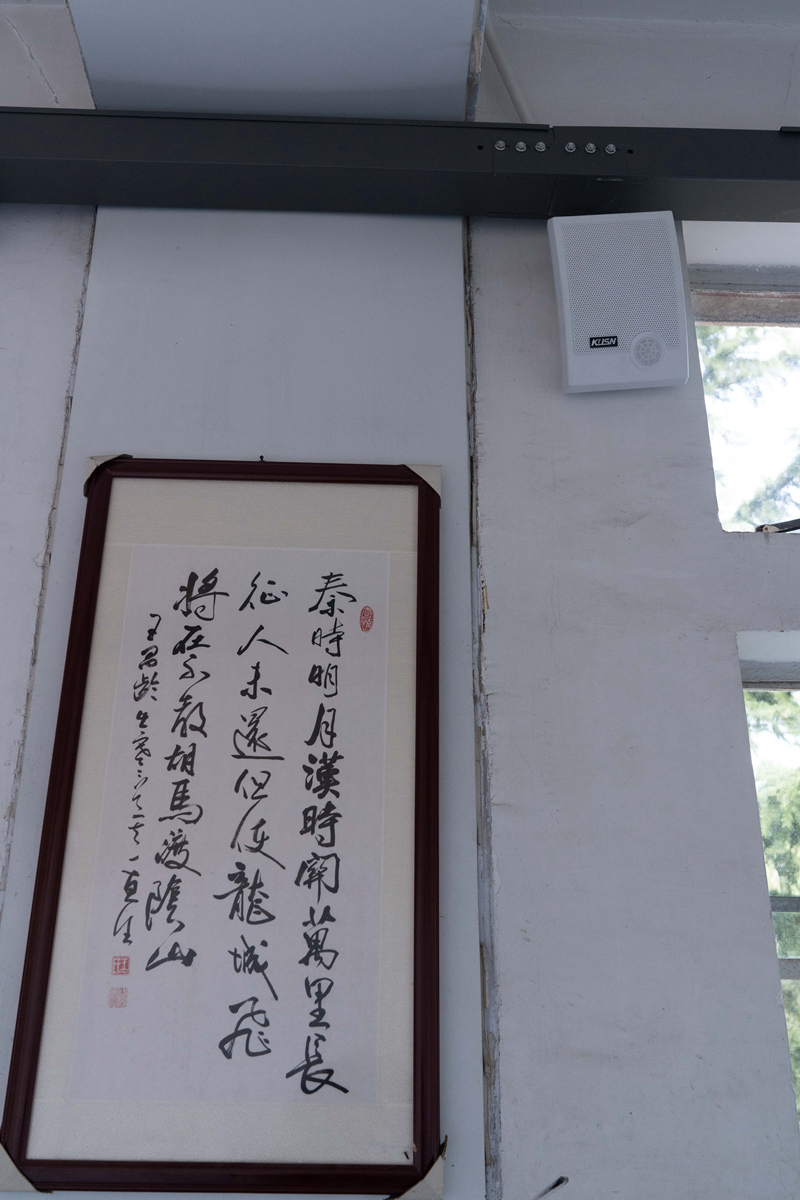 KUSN
秦時明月漢時關萬里長
征人未還但使龍城飛
將在不教胡馬渡陰山
王昌齡出塞